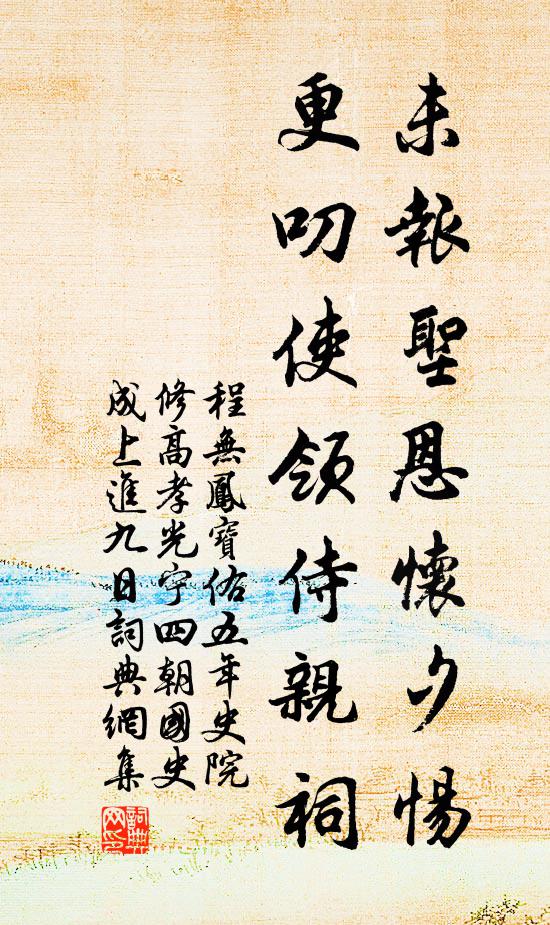 未報聖恩懷夕惕
更叨使領侍親祠
程無鳳寶佑五年史院
修高孝光宁四朝國史
成上進九日詞典網集
詞典網印